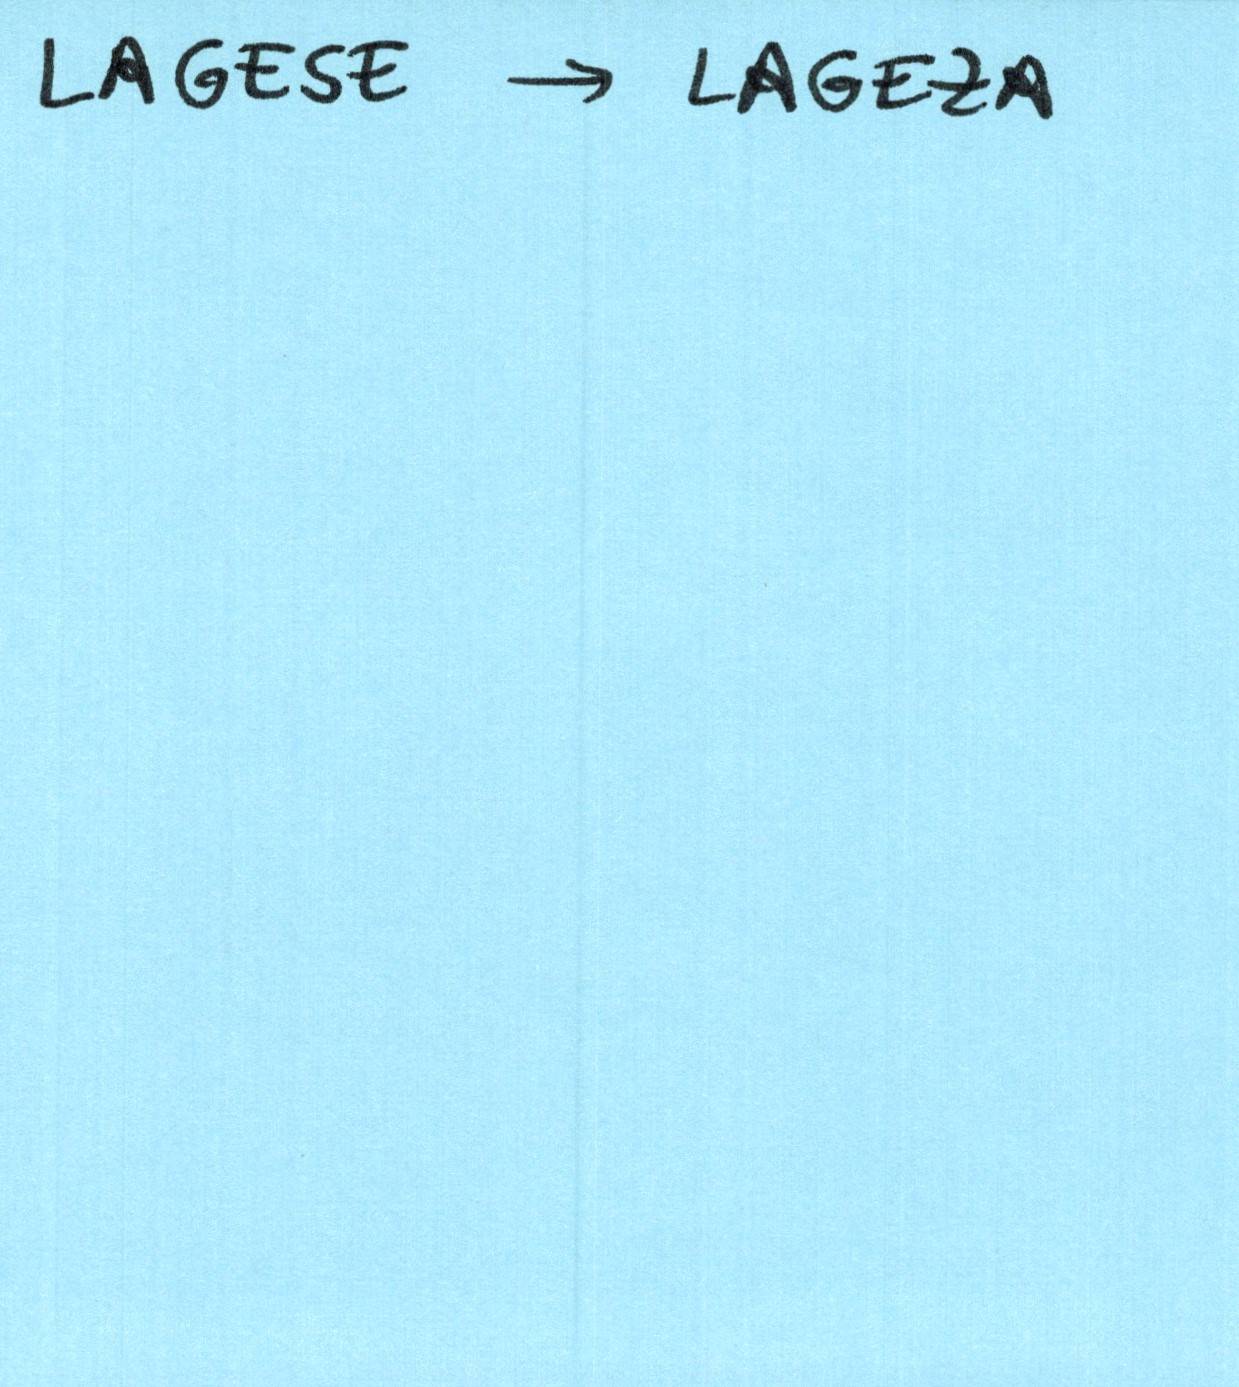 LAGESE → LAGEZA